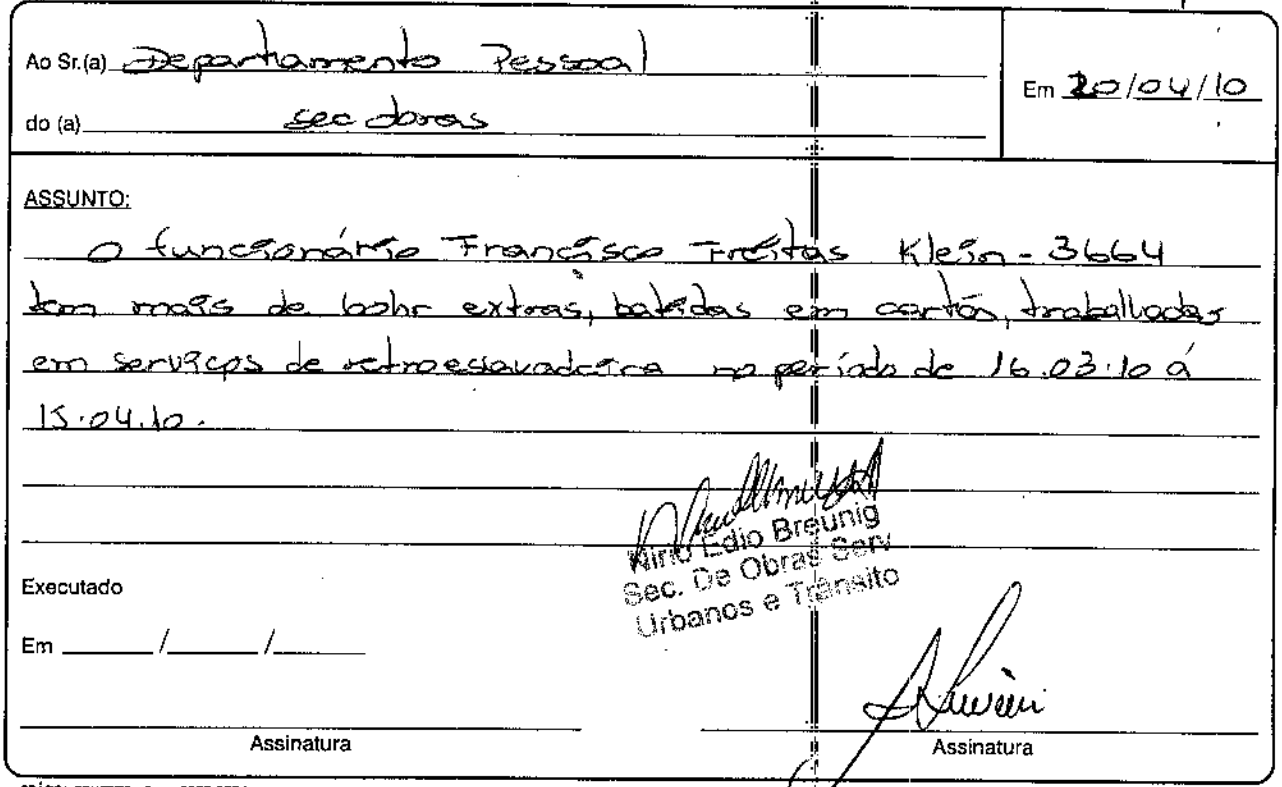 Ao Sr.(a) Departamento Pessoal
Em 20/04/10
do (a) sec obras
ASSUNTO:
O funcionário Francisco Freitas Klein - 3664
tem mais de 60hr extras, batidas em cartão, trabalhadas
em serviços de retroescavadeira no período de 16.03.10 á
15.04.10.
Nirio Edio Breunig
Sec. De Obras Serv
Urbanos e Trânsito
Executado
Em ____/____/____
Assinatura
Assinatura